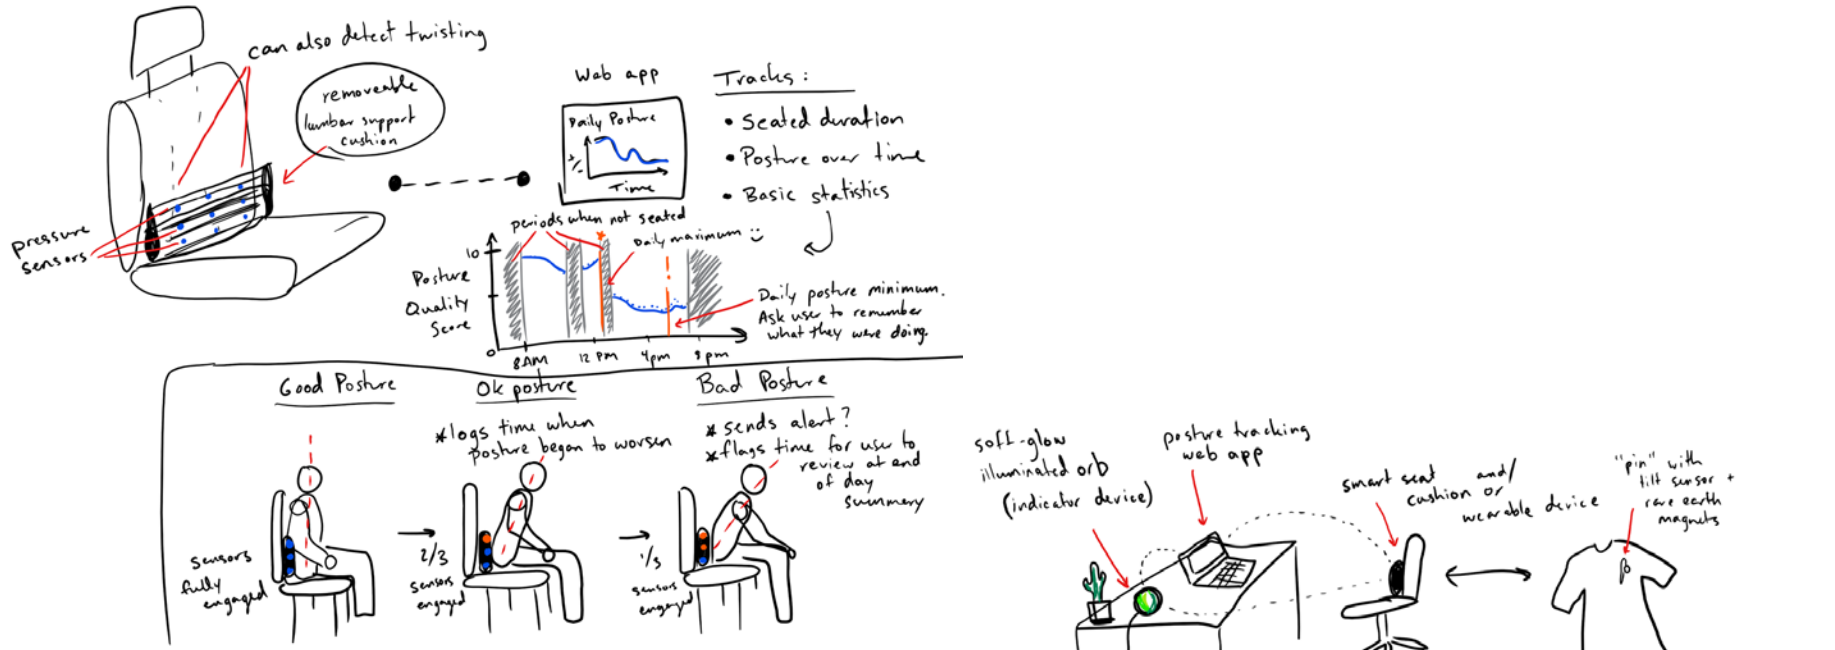 can also detect twisting
removeable
lumbar support
cushion
pressure
sensors
Web app
Daily Posture
Time
Tracks:
• Seated duration
• Posture over time
• Basic statistics
periods when not seated
Daily maximum :)
10
Posture
Quality
Score
0
8AM
12 PM
4pm
8pm
Daily posture minimum.
Ask user to remember
what they were doing.
Good Posture
sensors
fully
engaged
Ok posture
*logs time when
posture began to worsen
2/3
sensors
engaged
Bad Posture
* sends alert?
*flags time for user to
review at end
of day
summery
1/3
sensors
engaged
soft-glow
illuminated orb
(indicator device)
posture tracking
web app
smart seat
cushion and/
or
wearable device
"pin" with
tilt sensor +
rare earth
magnets